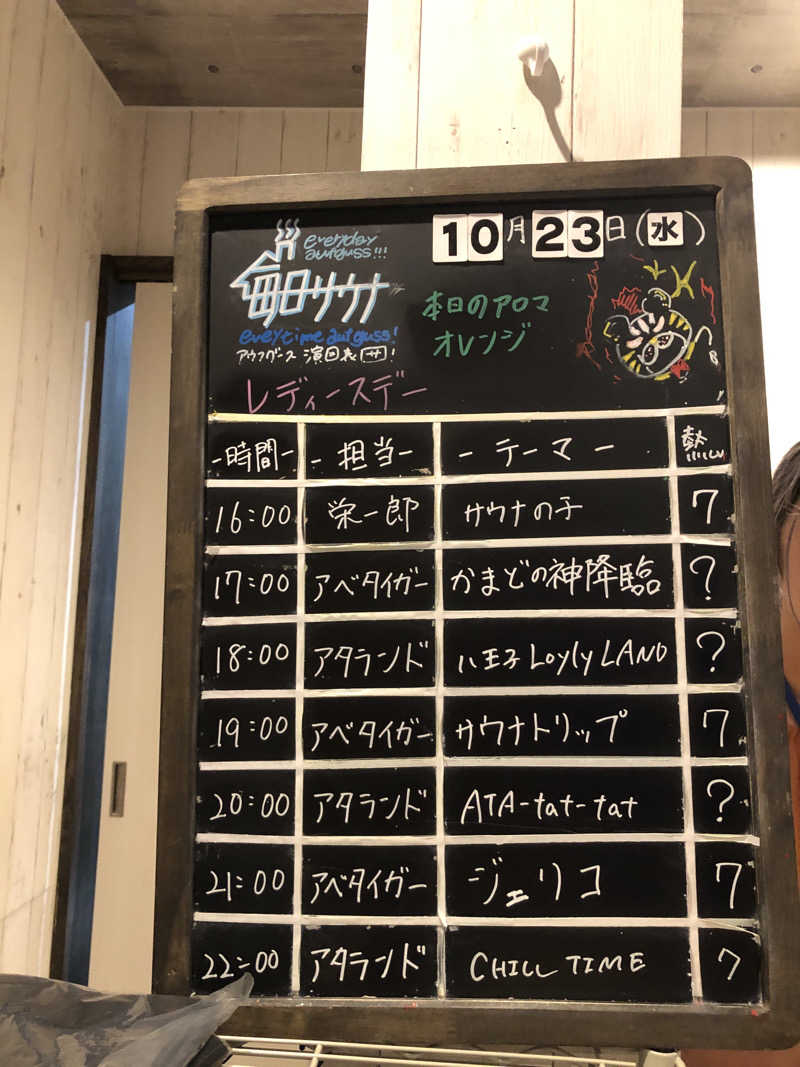 everyday
autguss!!!
毎日サウナ
eveytime autguss!
アウフグース 演目表 サ!
10月23日(水)
本日のアロマ
オレンジ
レディースデー
-時間- -担当- -テーマ- 熱
16:00 栄一郎 サウナの子 7
17:00 アベタイガー かまどの神降臨 ?
18:00 アタランド 八王子 Loyly LAND ?
19:00 アベタイガー サウナトリップ 7
20:00 アタランド ATA-tat-tat ?
21:00 アベタイガー ジェリコ 7
22:00 アタランド CHILL TIME 7